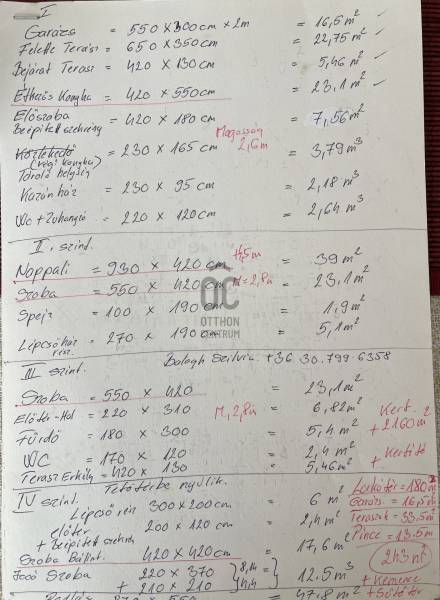 I
Garázs = 550 x 300 cm x 2m = 16,5 m²
Felette Terasz = 650 x 350 cm = 22,75 m²
Bejárat Terasz = 420 x 130 cm = 5,46 m²
Étkezős Konyha = 420 x 550 cm = 23,1 m²
Előszoba = 420 x 180 cm = 7,56 m²
Beépített szekrény
Közlekedő = 230 x 165 cm = 3,79 m³
Magasság 2,6m
(régi konyha)
Tároló helyiség
Kazánház = 230 x 95 cm = 2,18 m³
Wc + Zuhanyzó = 220 x 120 cm = 2,64 m³
II. szint.
Nappali = 930 x 420 cm = 39 m²
Szoba = 550 x 420 cm M=2,8m = 23,1 m²
Spejz = 100 x 190 cm = 1,9 m²
Lépcsőház = 270 x 190 cm = 5,1 m²
OTTHON
CENTRUM
III szint. Balogh Szilvia +36 30.799-6358
Szoba = 550 x 420 = 23,1 m²
Előtér-Hal = 220 x 310 M, 2,8m = 6,82 m²
Fürdő = 180 x 300 = 5,4 m²
WC = 170 x 120 = 2,4 m²
Terasz Erkély = 420 x 130 = 5,46 m²
Kert. 2
+ 2160 m
+ Kertitó
Tetőtérbe nyúlik.
IV szint.
Lépcső rész 300 x 200 cm = 6 m²
előtér 200 x 120 cm = 2,4 m²
+ Beépített szekrény
Szoba Bálint. 420 x 420 cm = 17,6 m²
Szoba 220 x 370 = 12.5 m³
+ 210 x 210
Lakótér = 180 m²
Garázs. = 16,5 m
Teraszok = 33,5 m
Pince = 13.5 m
243 m²
+ Kemence
= 47,8 m²